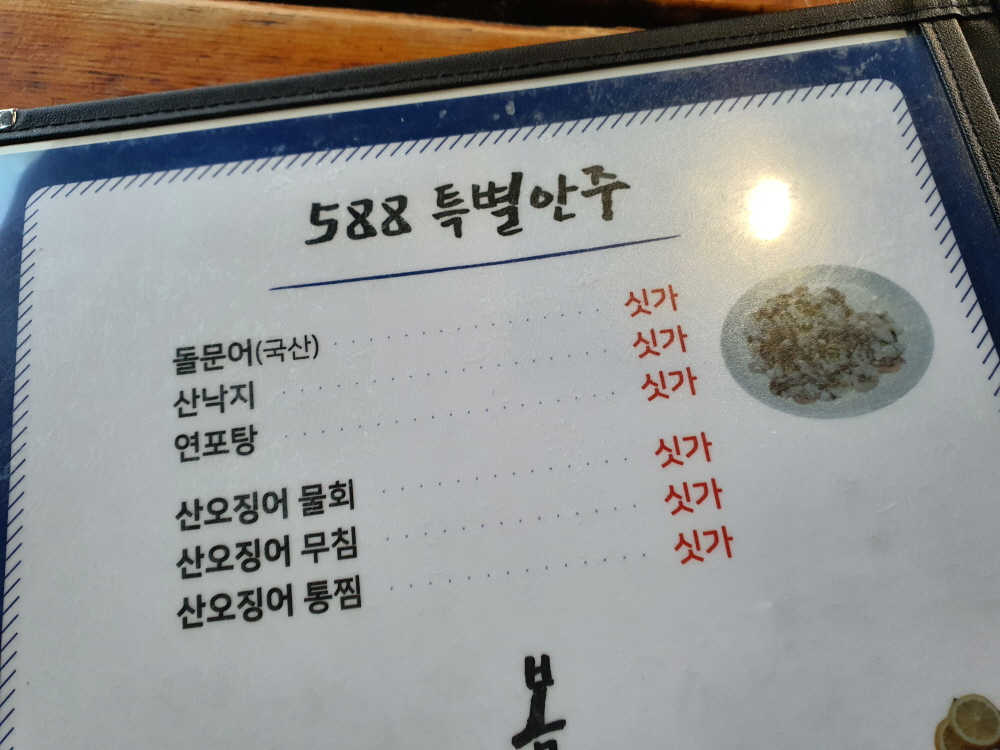 588 특별안주
돌문어(국산) 싯가
산낙지 싯가
연포탕 싯가
산오징어 물회 싯가
산오징어 무침 싯가
산오징어 통찜 싯가
봄